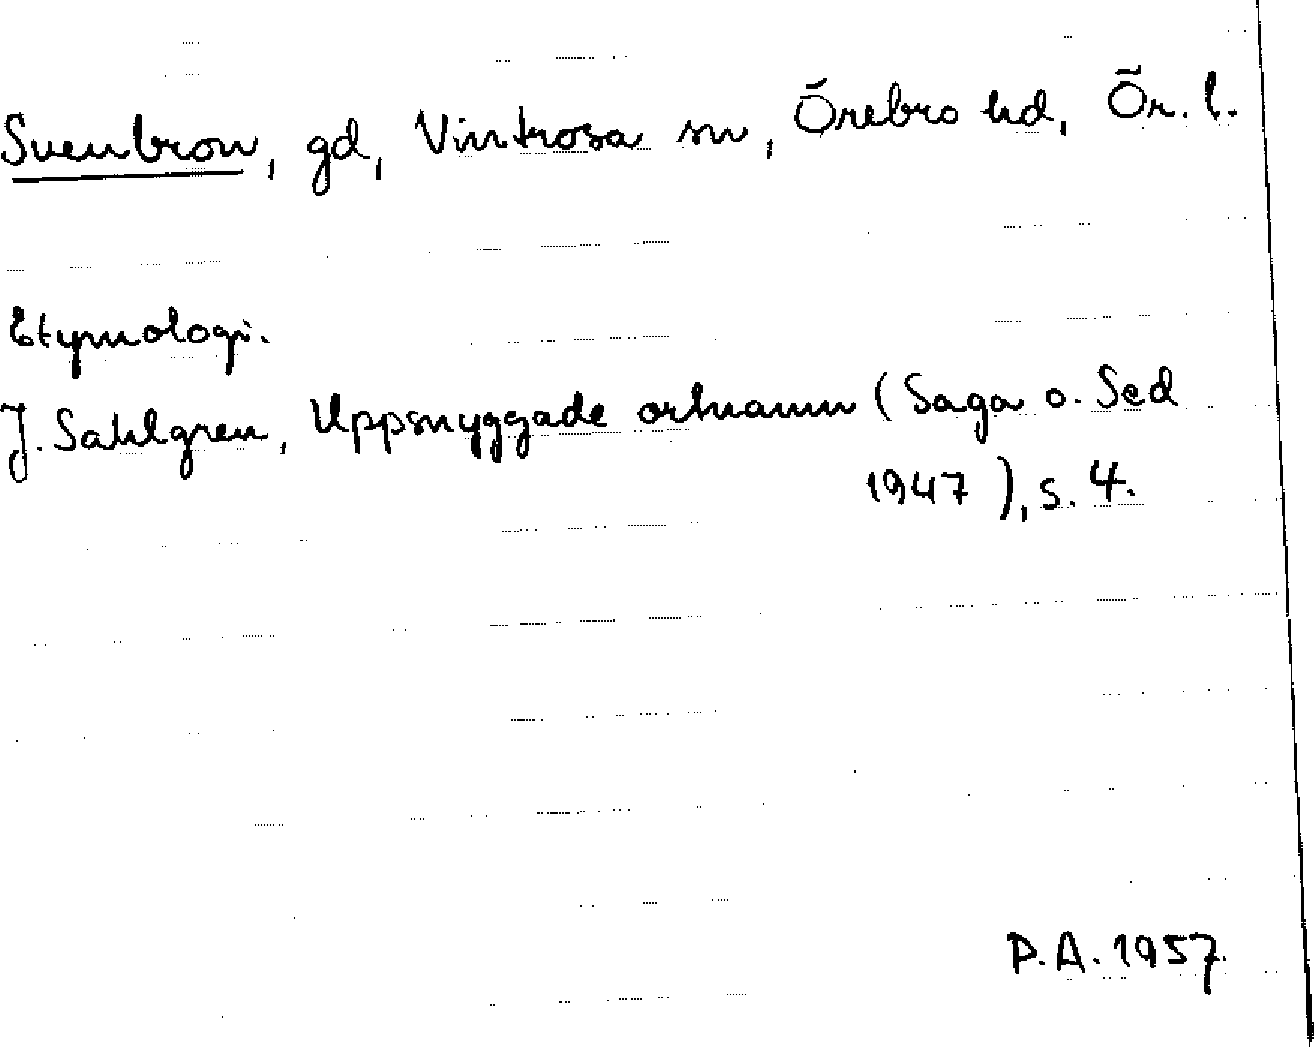 Svenbron, gd, Vintrosa sn, Örebro hd, Ör. l.
Etymologi.
J. Sahlgren, Uppsnyggade ortnamn (Saga o. Sed
1947), s. 4.
P.A. 1957.